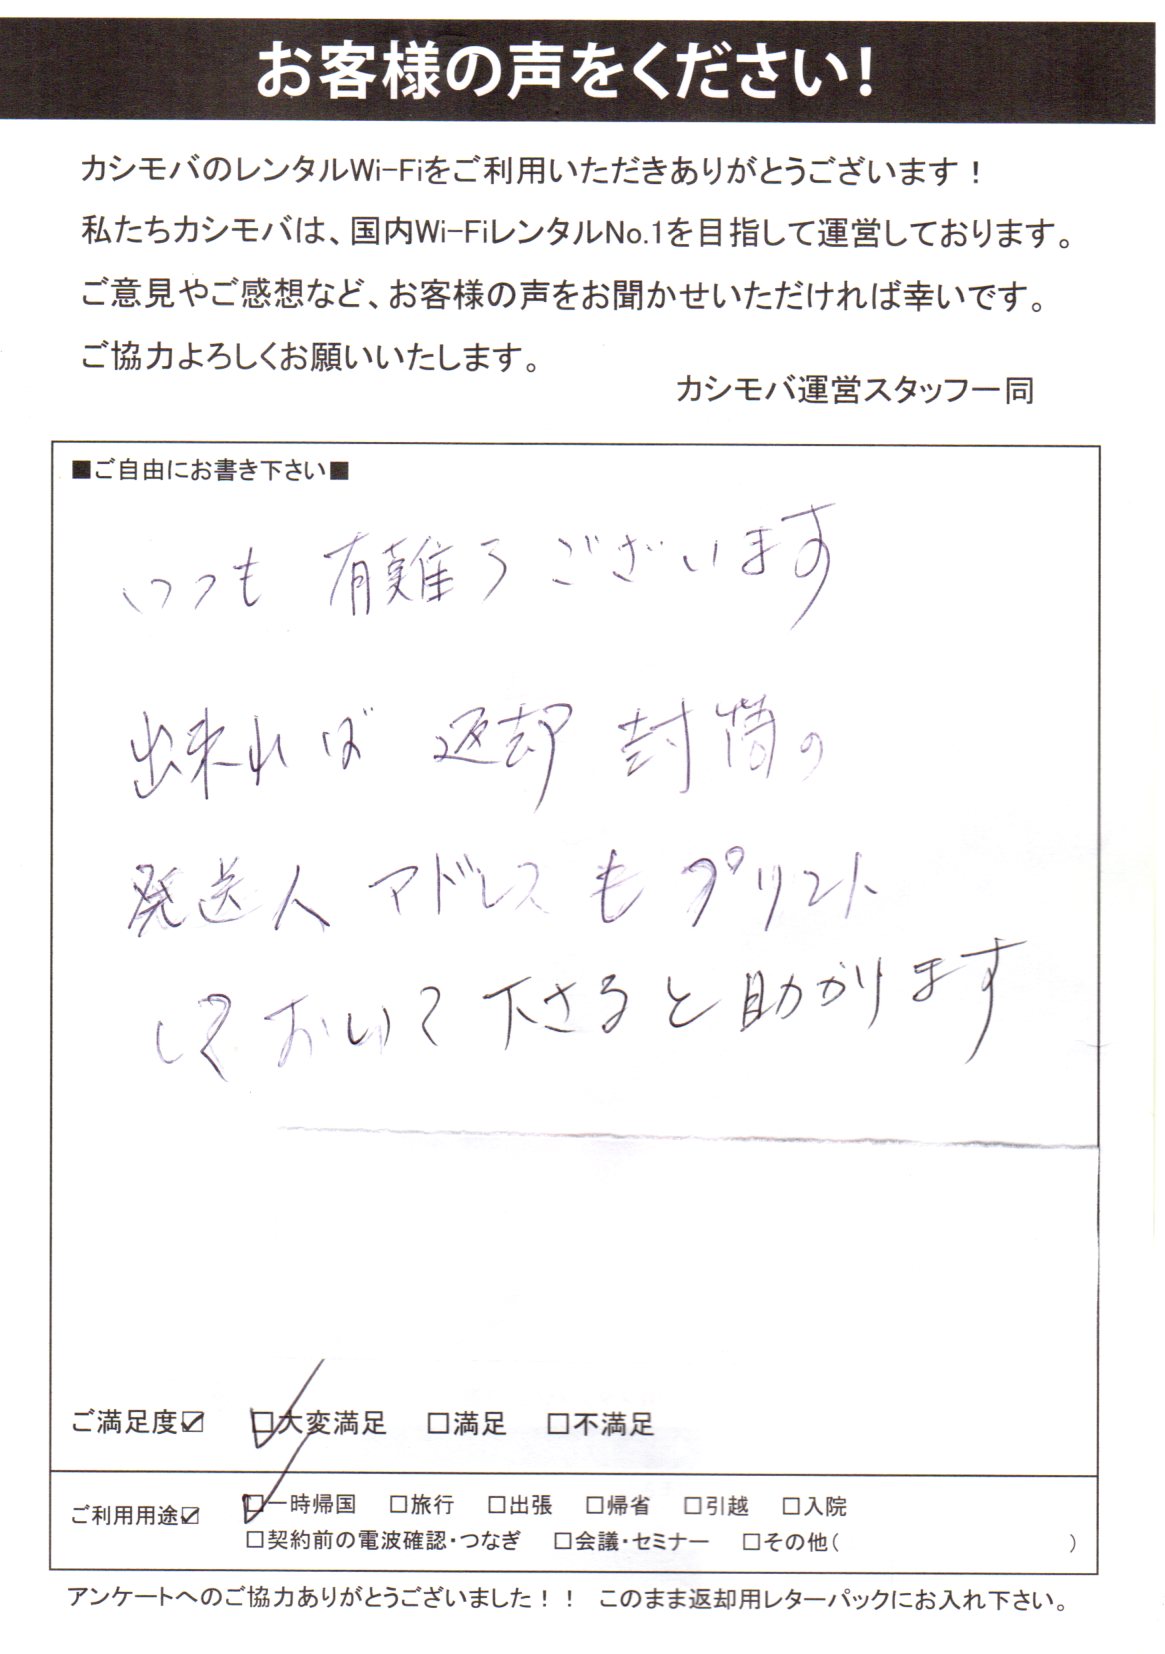 お客様の声をください!
カシモバのレンタルWi-Fiをご利用いただきありがとうございます！
私たちカシモバは、国内Wi-FiレンタルNo.1を目指して運営しております。
ご意見やご感想など、お客様の声をお聞かせいただければ幸いです。
ご協力よろしくお願いいたします。
カシモバ運営スタッフ一同
■ご自由にお書き下さい■
いつも 有難うございます
出来れば 返却 封筒の
発送人 アドレスも プリント
しておいて 下さると 助かります
ご満足度☑ ☑大変満足 □満足 □不満足
ご利用用途☑ ☑一時帰国 □旅行 □出張 □帰省 □引越 □入院
□契約前の電波確認・つなぎ □会議・セミナー □その他( )
アンケートへのご協力ありがとうございました！！ このまま返却用レターパックにお入れ下さい。